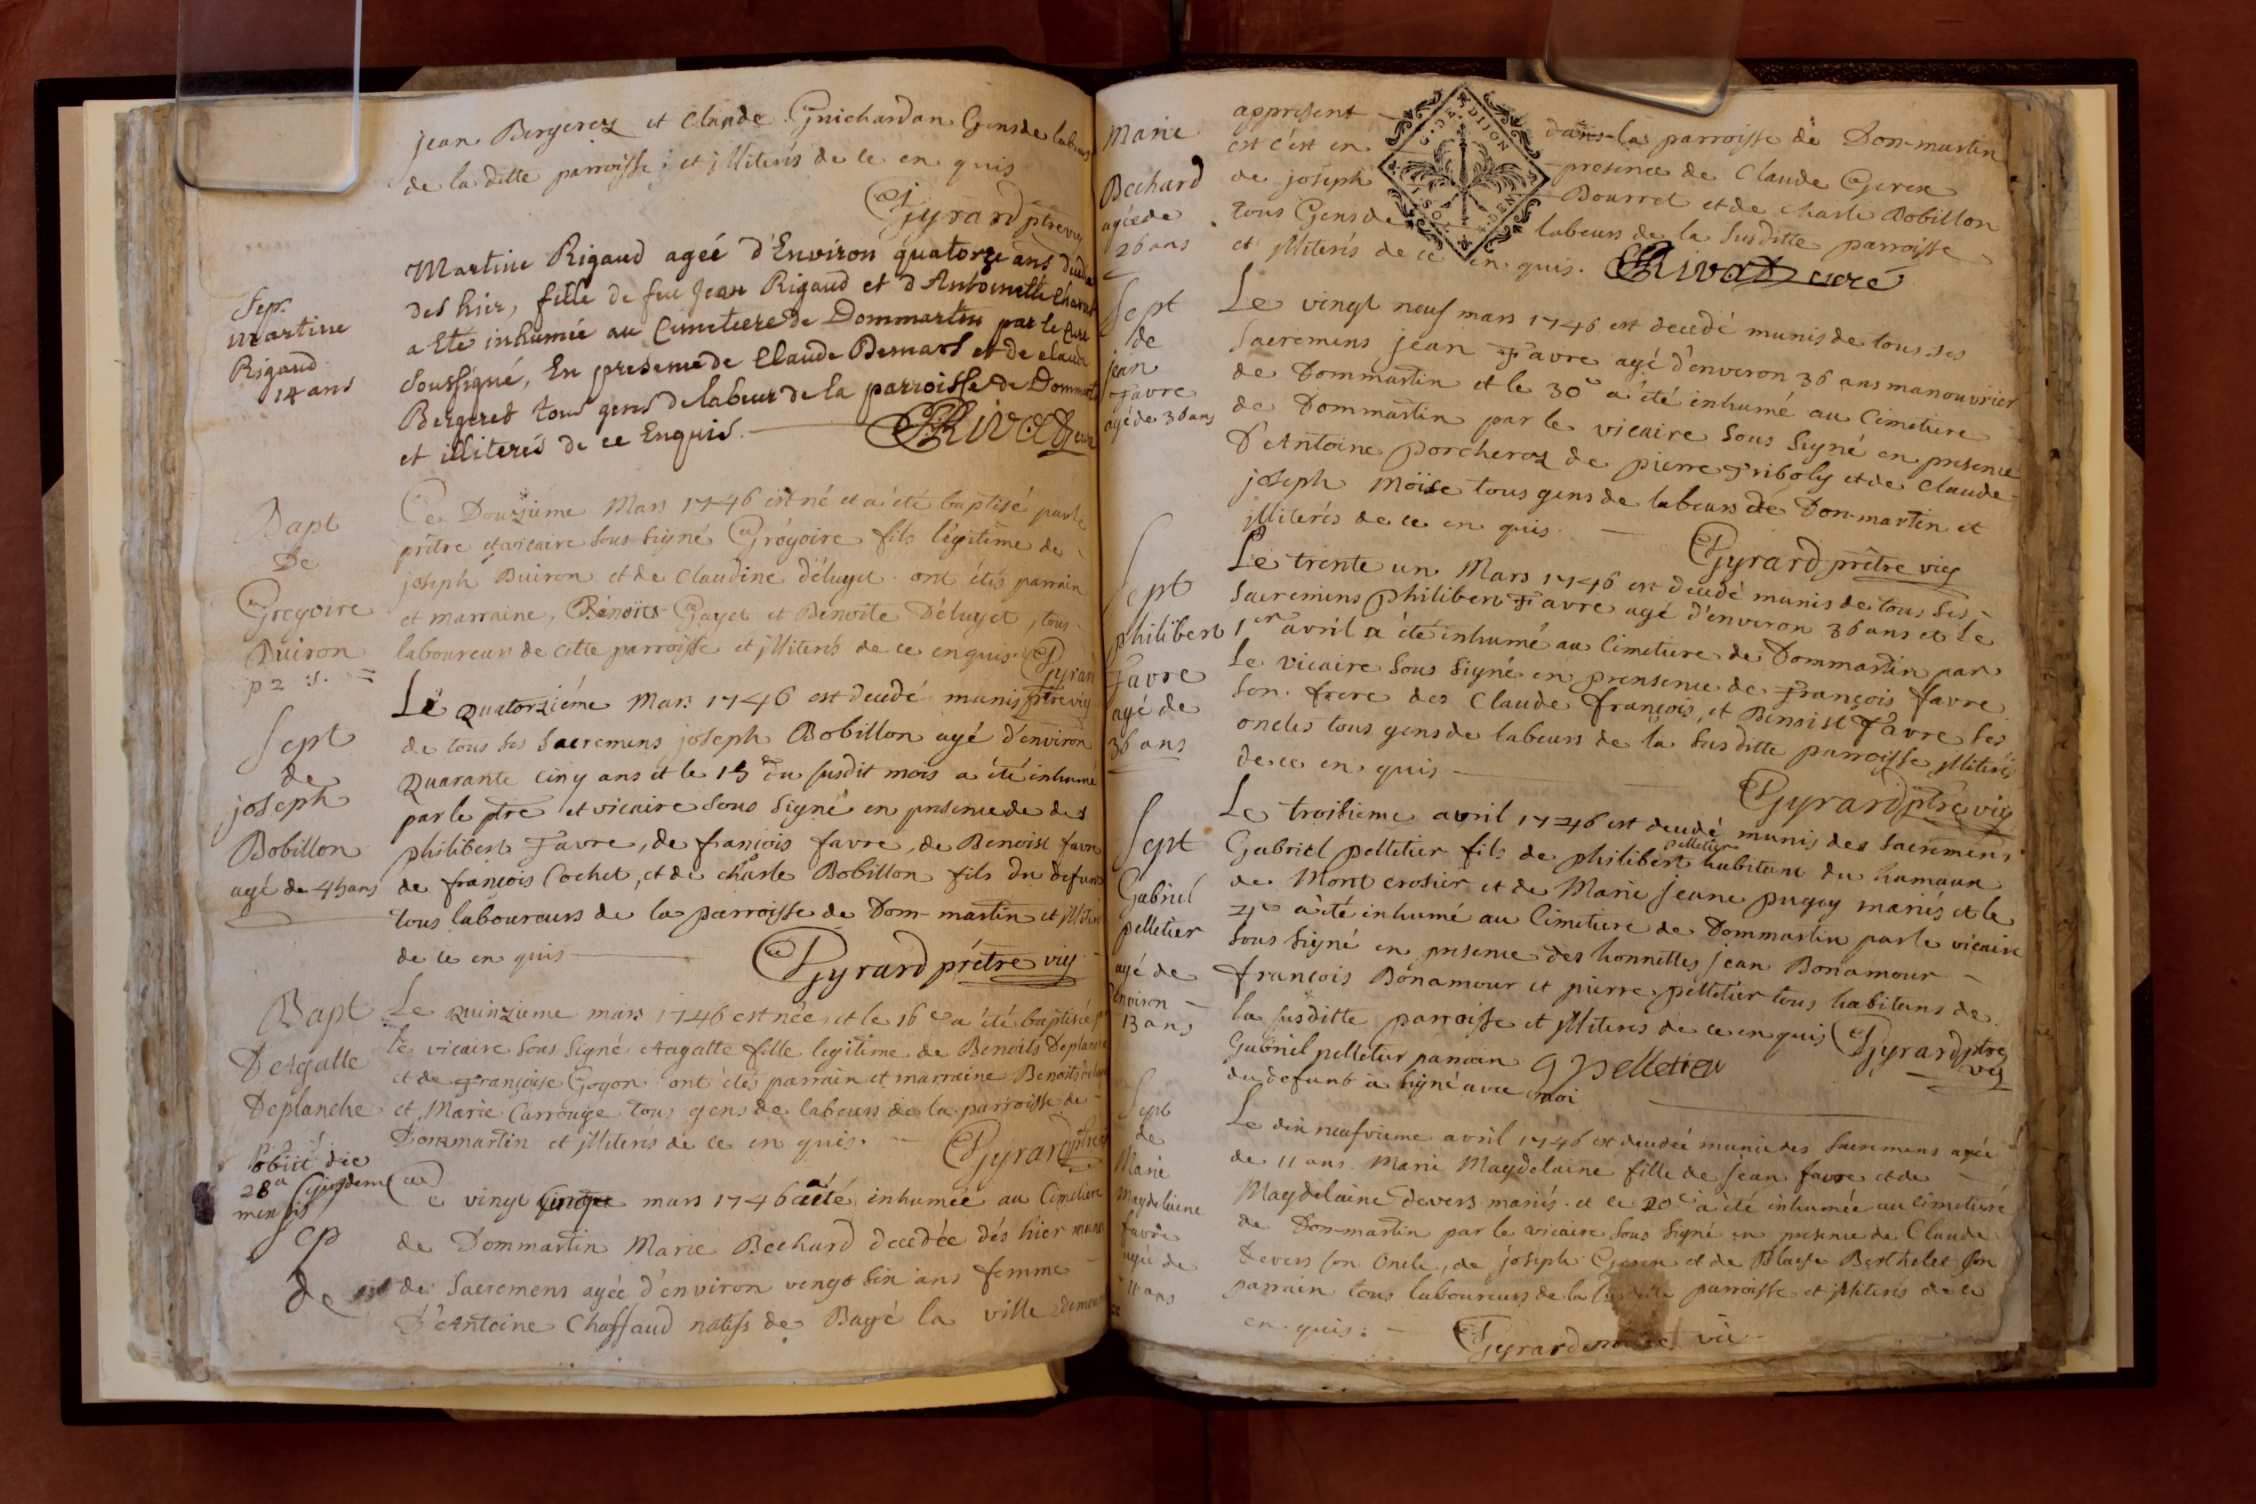 jean Bergerez et Claude Guichardan Gens de labeurs
de la ditte parroisse, et jlliterés de ce en quis
Gyrard ptre vic
Sep.
martine
Rigaud
14 ans
Martine Rigaud ageé d'Environ quatorze ans
des hier, fille de feu Jean Rigaud et d'Antoinette
a Eté inhumée au Cimetiere de Dommartin par le Curé
Soussigné, En presence de Claude Bernard et de claude
Bergered tous gens de labeur de la parroisse de Dommart
et illiterés de ce Enquis.
Rivat curé
Bapt
De
Gregoire
Buiron
p 2 s.
Ce Douzième Mars 1746 est né et a été baptisé par le
prêtre et vicaire sous signé Grégoire fils légitime de
joseph Buiron et de Claudine Déluget ont étés parrain
et marraine, Benoits Gayet et Benoite Déluget, tous
laboureurs de cette parroisse et jlliterés de ce enquis Gyrard
ptre vic
Sept
de
joseph
Bobillon
agé de 45 ans
Le Quatorziéme Mars 1746 est decedé munis
de tous ses Sacremens joseph Bobillon agé d'environ
Quarante cinq ans et le 15e du susdit mois a été inhumé
par le ptre et vicaire sous signé en presence de des
philibert Favre, de françois favre, de Benoist favre
de françois Cochet, et de charle Bobillon fils du defunt
tous laboureurs de la parroisse de Dom-martin et jlliterés
de ce en quis
Gyrard prêtre vic
Bapt
D'eAgatte
Deplanche
p 2 s.
Le Quinzieme mars 1746 est née, et le 16e a été baptisée p
le vicaire sous signé eAagatte fille legitime de Benoits Deplanche
et de Françoise Goyon ont étés parrain et marraine Benoits
et Marie Carrouge tous gens de labeurs de la parroisse de
Dommartin et jlliterés de ce en quis.
Gyrard ptre
obiit die
28a ejusdem
mensis
Sep
de
Ce vingt cinque mars 1746 a été inhumée au Cimetiere
de Dommartin Marie Bechard decedée dés hier munie
de Sacremens agée d'environ vengt six ans femme
D'eAntoine Chaffaud natifs de Bagé la ville demeurant
Marie
Bechard
agée de
26 ans
appresent dans la parroisse de Dom-martin
et c'est en presence de Claude Geren
de joseph Bourret et de charle Bobillon
tous Gens de labeurs de la susditte parroisse
et jlliterés de ce en quis. Rivat curé
G. DE. DIJON
Sept
de
jean
Favre
agé de 36 ans
Le vingt neuf mars 1746 est decedé munis de tous ses
Sacremens jean Favre agé d'environ 36 ans manouvrier
de Dommartin et le 30e a été inhumé au Cimetiere
de Dommartin par le vicaire sous signé en presence
D'eAntoine Porcherez de pierre Friboly et de Claude
joseph Moïse tous gens de labeurs de Dommartin et
jlliterés de ce en quis.
Gyrard prêtre vic
Sept
philibert
Favre
agé de
36 ans
Le trente un Mars 1746 est decedé munis de tous ses
Sacremens philibert Favre agé d'environ 36 ans et le
1er avril a été inhumé au Cimetiere de Dommartin par
le vicaire sous signé en prensence de François favre
son frere des Claude françois, et Benoist Favre ses
oncles tous gens de labeurs de la susditte parroisse jlliterés
de ce en quis
Gyrard ptre vic
Sept
Gabriel
pelletier
agé de
environ
13 ans
Le troisieme avril 1746 est decedé munis des Sacremens
Gabriel pelletier fils de philibert pelletier habitant du hamaux
de Mont crosier et de Marie jeane pugey mariés et le
4e a été inhumé au Cimetiere de Dommartin par le vicaire
sous signé en presence des honnettes jean Bonamour
françois Bonamour et pierre pelletier tous habitans de
la susditte parroisse et jlliterés de ce en quis Gyrard ptre
vic
Gabriel pelletier parrain
du defunt a signé avec moi
G Pelletier
Sept
de
Marie
Magdelaine
favre
agé de
11 ans
Le dix neufvieme avril 1746 est decedeé munie des Sacremens agée
de 11 ans Marie Magdelaine fille de jean favre et de
Magdelaine Devers mariés et le 20e a été inhumée au Cimetiere
de Dommartin par le vicaire sous signé en presence de Claude
Devers son oncle, de joseph Geren et de Blaise Berthelet son
parrain tous laboureurs de la susditte parroisse et jlliterés de ce
en quis.
Gyrard vic